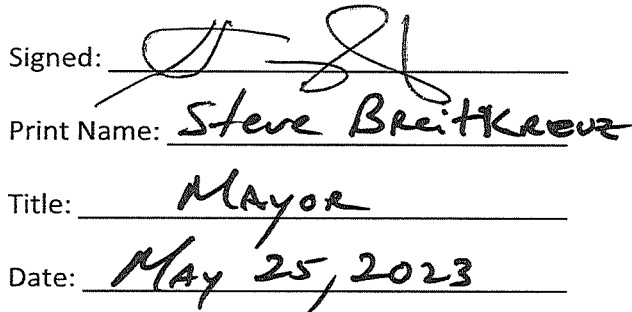 Signed:
Print Name: Steve Breitkreuz
Title: Mayor
Date: May 25, 2023